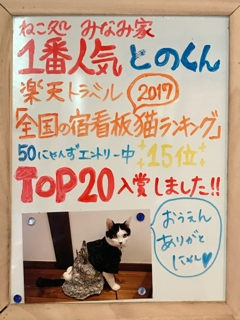 ねこ処 みなみ家
1番人気 とのくん
楽天トラベル 2017
「全国の宿看板猫ランキング」
50にゃんずエントリー中 15位
TOP20入賞しました!!
おうえん
ありがと
にゃん♡